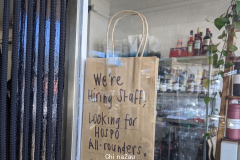 We're
Hiring Staff,
Looking for
Hospo
All-rounders.
Chi nazau